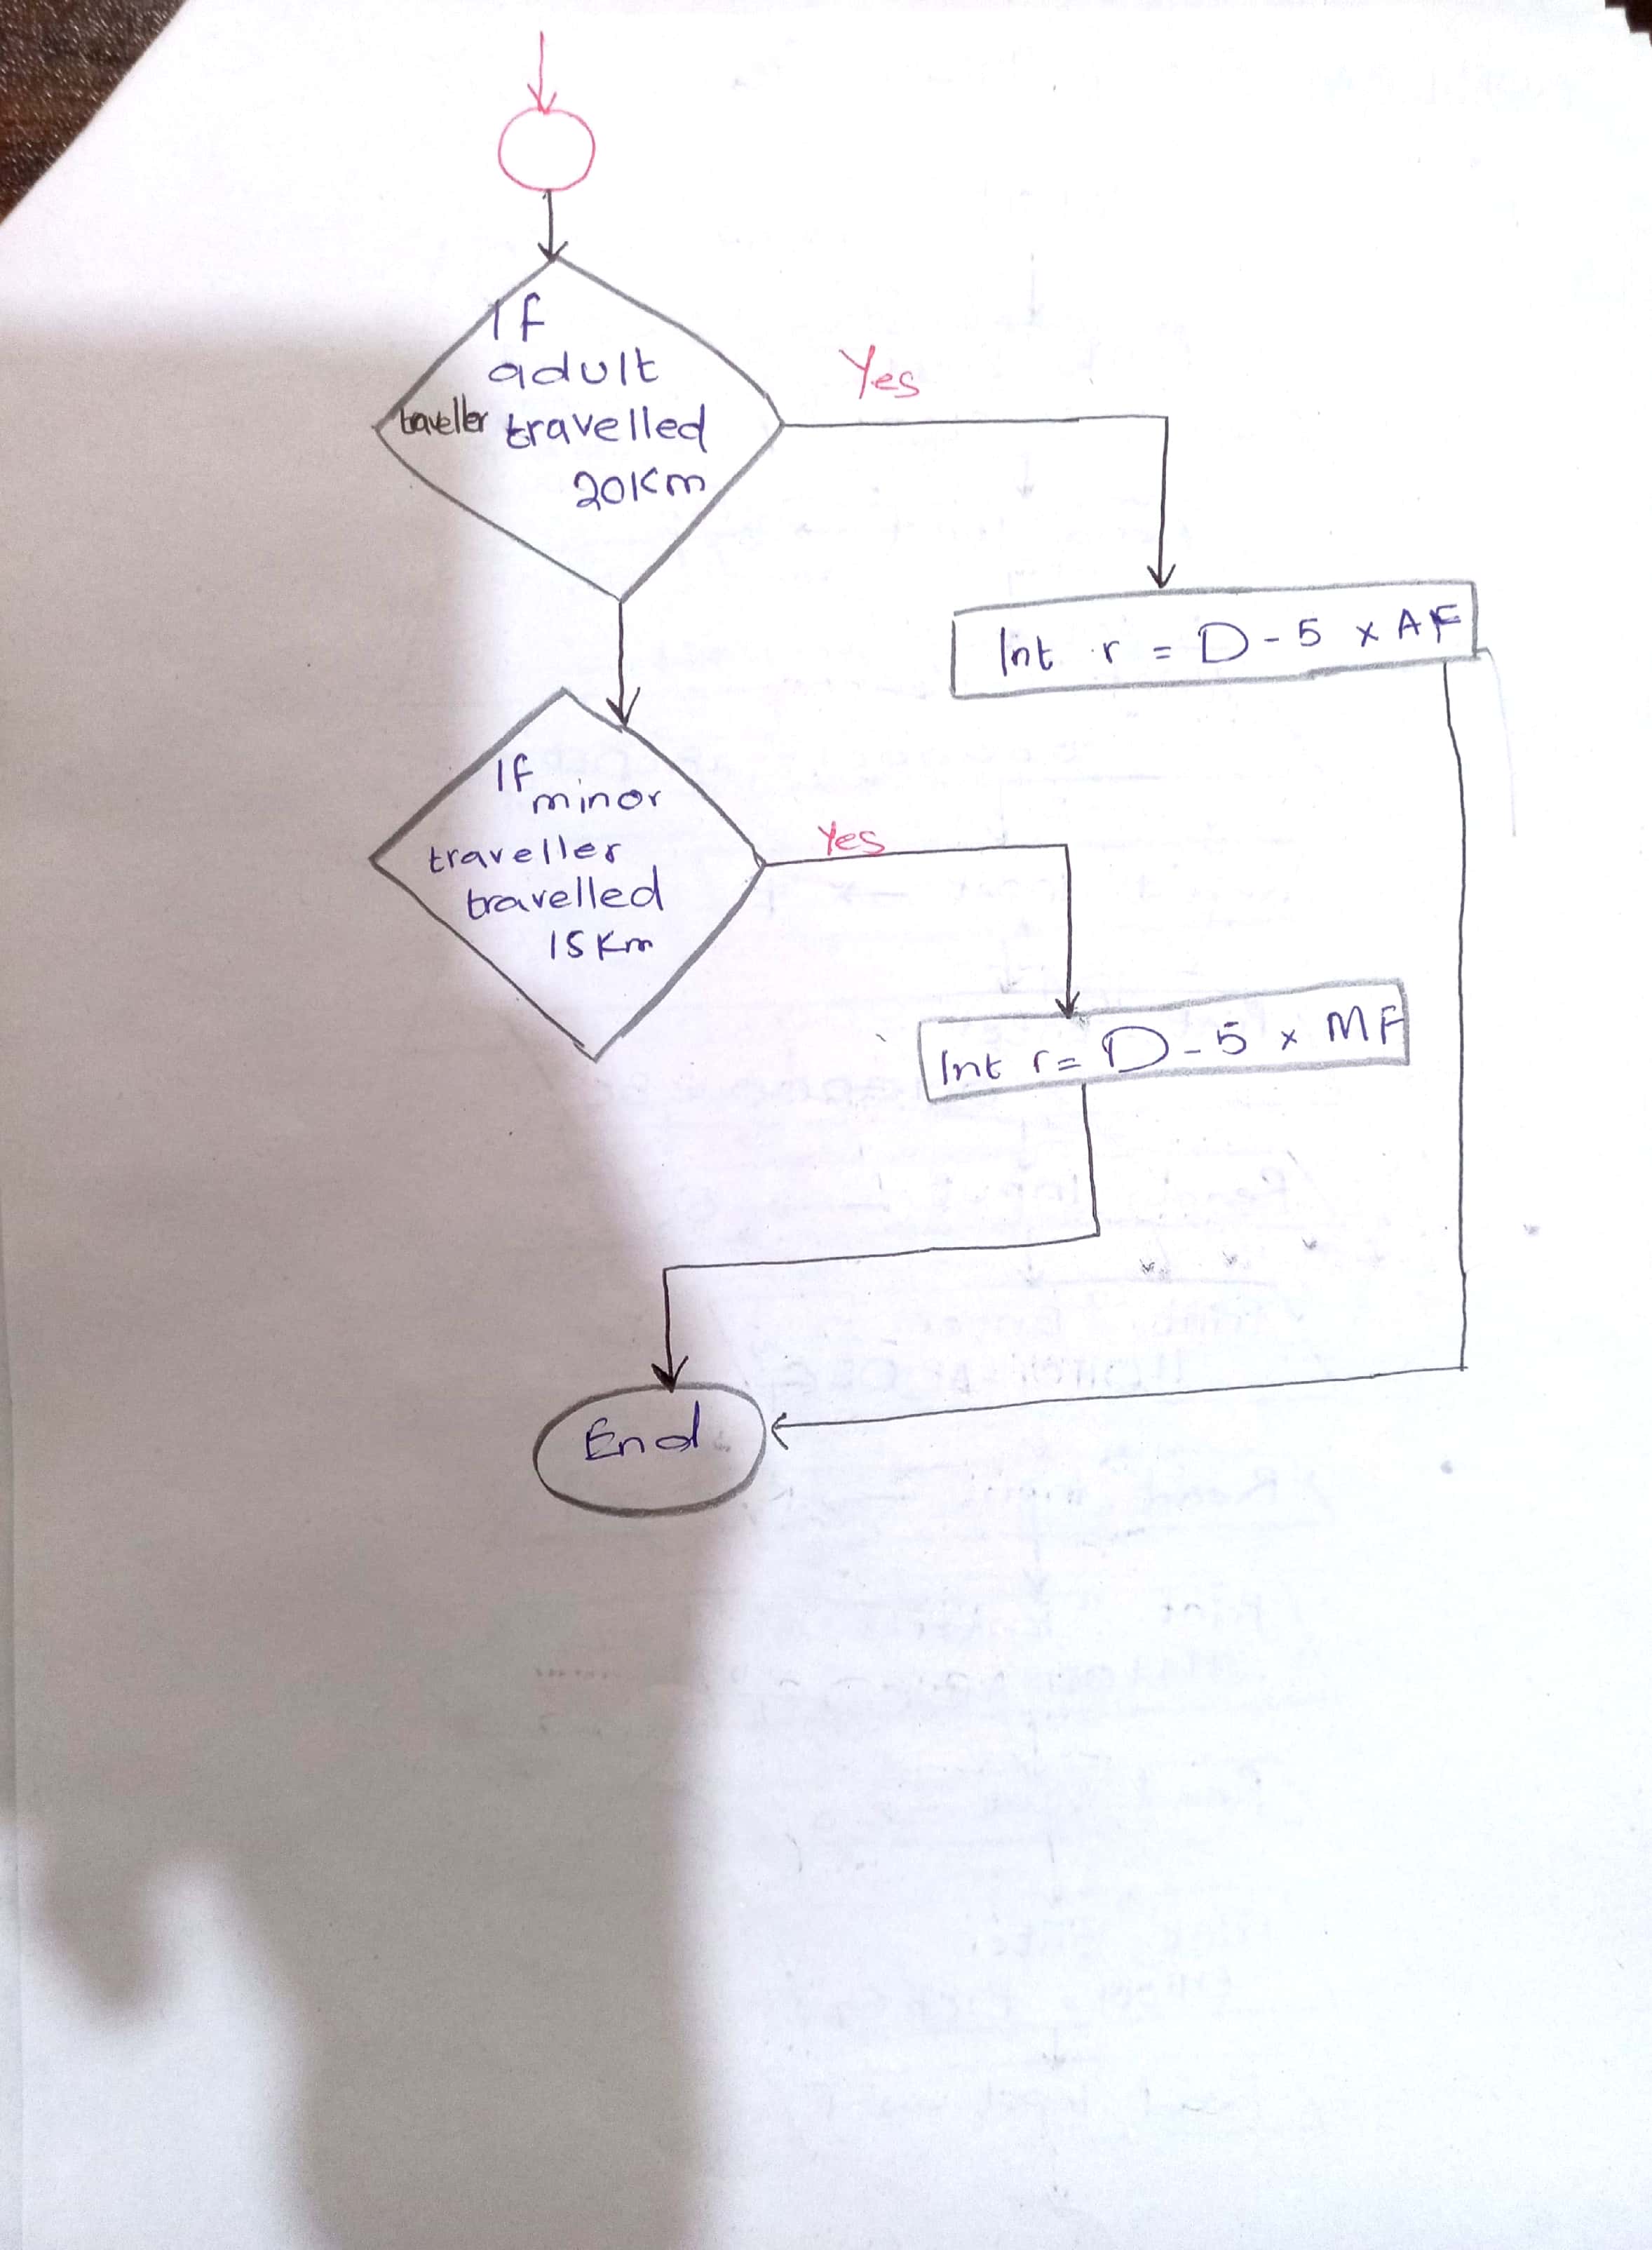 If
adult
traveller travelled
20Km
Yes
Int r = D - 5 x AF
If
minor
traveller
travelled
15 Km
Yes
Int r = D - 5 x MF
End